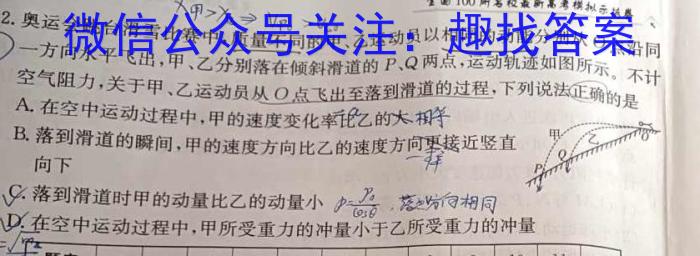 全国100所名校最新高考模拟示范卷
微信公众号关注：趣找答案
2. 奥运 质量不同的 运动员以相 动能分别从 沿同
一方向水平飞出，甲、乙分别落在倾斜滑道的 P、Q 两点，运动轨迹如图所示。不计
空气阻力，关于甲、乙运动员从 O 点飞出至落到滑道的过程，下列说法正确的是
A. 在空中运动过程中，甲的速度变化率比乙的大 相等
B. 落到滑道的瞬间，甲的速度方向比乙的速度方向更接近竖直
向下 一样
C. 落到滑道时甲的动量比乙的动量小 落 方向相同
D. 在空中运动过程中，甲所受重力的冲量小于乙所受重力的冲量
甲 乙 O
P Q